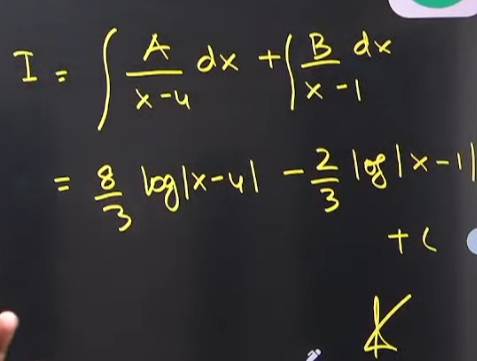 I = ∫ A/(x-4) dx + ∫ B/(x-1) dx
= 8/3 log|x-4| - 2/3 log|x-1|
+ c